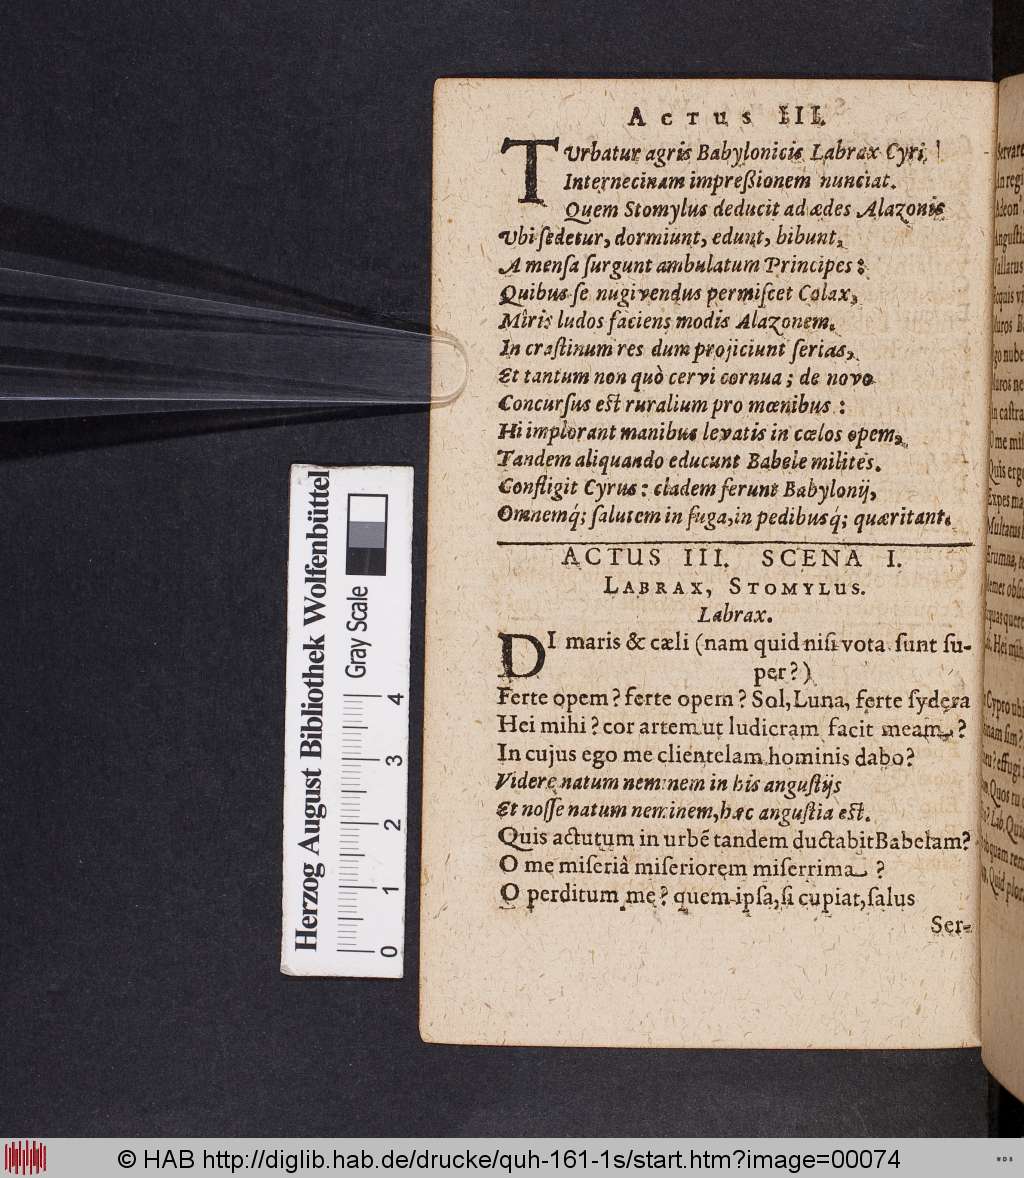 ACTUS III.
TUrbatur agris Babylonicis Labrax Cyri
Internecinam impreßionem nunciat.
Quem Stomylus deducit ad ædes Alazonis
Ubi ſedetur, dormiunt, edunt, bibunt,
A menſa ſurgunt ambulatum Principes:
Quibus ſe nugivendus permiſcet Colax,
Miris ludos faciens modis Alazonem.
In craſtinum res dum projiciunt ſerias,
Et tantum non quò cervi cornua; de novo
Concurſus eſt ruralium pro mœnibus:
Hi implorant manibus levatis in cœlos opem,
Tandem aliquando educunt Babele milites.
Confligit Cyrus: cladem ferunt Babylonij,
Omnemq́; ſalutem in fuga, in pedibusq́; quæritant.
ACTUS III. SCENA I.
LABRAX, STOMYLUS.
Labrax.
DI maris & cæli (nam quid niſi vota ſunt ſu-
per?)
Ferte opem? ferte opem? Sol, Luna, ferte ſydera
Hei mihi? cor artem ut ludicram facit meam?
In cujus ego me clientelam hominis dabo?
Videre natum neminem in his anguſtijs
Et noſſe natum neminem, hæc anguſtia eſt.
Quis actutum in urbē tandem ductabit Babelam?
O me miſeriâ miſeriorem miſerrima?
O perditum me? quem ipſa, ſi cupiat, ſalus
Ser-
Herzog August Bibliothek Wolfenbüttel
Gray Scale
0 1 2 3 4
Servare
In regi
Adeon
Anguſti
Vallatus
© HAB http://diglib.hab.de/drucke/quh-161-1s/start.htm?image=00074